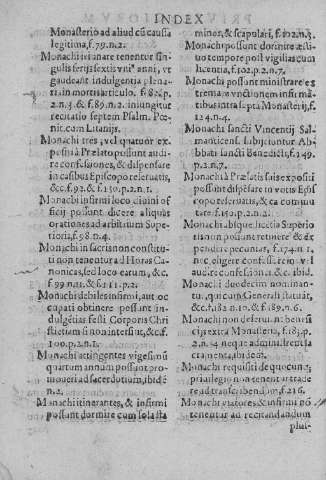 INDEX
Monasterio ad aliud cũ causa
legitima, f.79.n.2.
Monachi isti anate tenentur sin
gulis ferijs sextis vniꝰ anni, vt
gaudeant indulgentia plena-
ri. in mortis articulo. f.82.p.
2.n.4. & f.89.n.2. iniungitur
recitatio septem Psalm. Pœ-
nit.cum Litanijs.
Monachi tres, vel quatuor ex-
positi à Prælato possunt audi-
re confessiones, & dispensare
in casibus Episcopo reseruatis,
&c.f.92.& f.150.p.2.n.1.
Monachi infirmi loco diuini of
ficij possunt dicere aliquas
orationes ad arbitrium Supe-
rioris, f.98.n.4.
Monachi in sacris non constitu-
ti non tenentur ad Horas Ca-
nonicas, sed loco earum, &c.
f.99.n.11. & f.111.p.2.
Monachi debiles infirmi, aut oc
cupati obtinere possunt in-
dulgētias festi Corporis Chri
sti etiam si non intersint, &c.f.
100.p.2.n.1.
Monachi attingentes vigesimũ
quartum annum possunt pro-
moueri ad sacerdotium, ibidē
n.2.
Monachi itinerantes, & infirmi
possunt dormire cum sola sla
minois, & scapulari, f.102.n.3.
Monachi possunt dormire æsti-
uo tempore post vigilias cum
licentia, f.102.p.2.n.7.
Monachi possunt recipere ex
tremam vnctionem in
intra septa Monasterij, f.
124.n.4.
Monachi sancti Vincentij Sal-
manticens. Ab-
batis sancti Benedicti, f.149.
p.2.n.7.
Monachi à Prælatis suis expositi
possunt dispēsare in votis Epis
copo reseruatis, & ea commu
tare. f.150.p.2.n.2.
Monachi absque licentia Superio
ris non possunt retinere & ex
pendere pecunias, f.174.n.1.
nec eligere confess. rem v
aud.re confession.n.1.&c. ibid.
Monachi duodecim nominan-
tu. qui cum Generali statuāt,
&c.f.182.n.10. & f.6.
Monachi non deferūt. nec ensi
eij extra Monasteria, f.183.p.
2.n.34 neque admittunt in sa
cramenta, ibidem.
Monachi requisiti de quocunq;
priuilegio non tenentur trade
re ad transcribendum, f.216.
Monachi viatores, & infirmi nō
tenentur ad recitandum dum
plui-